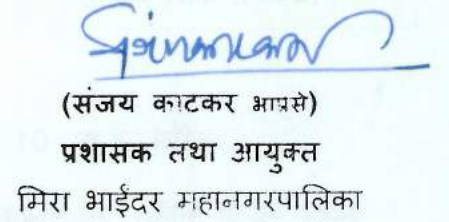 (संजय काटकर भाप्रसे)
प्रशासक तथा आयुक्त
मिरा भाईंदर महानगरपालिका